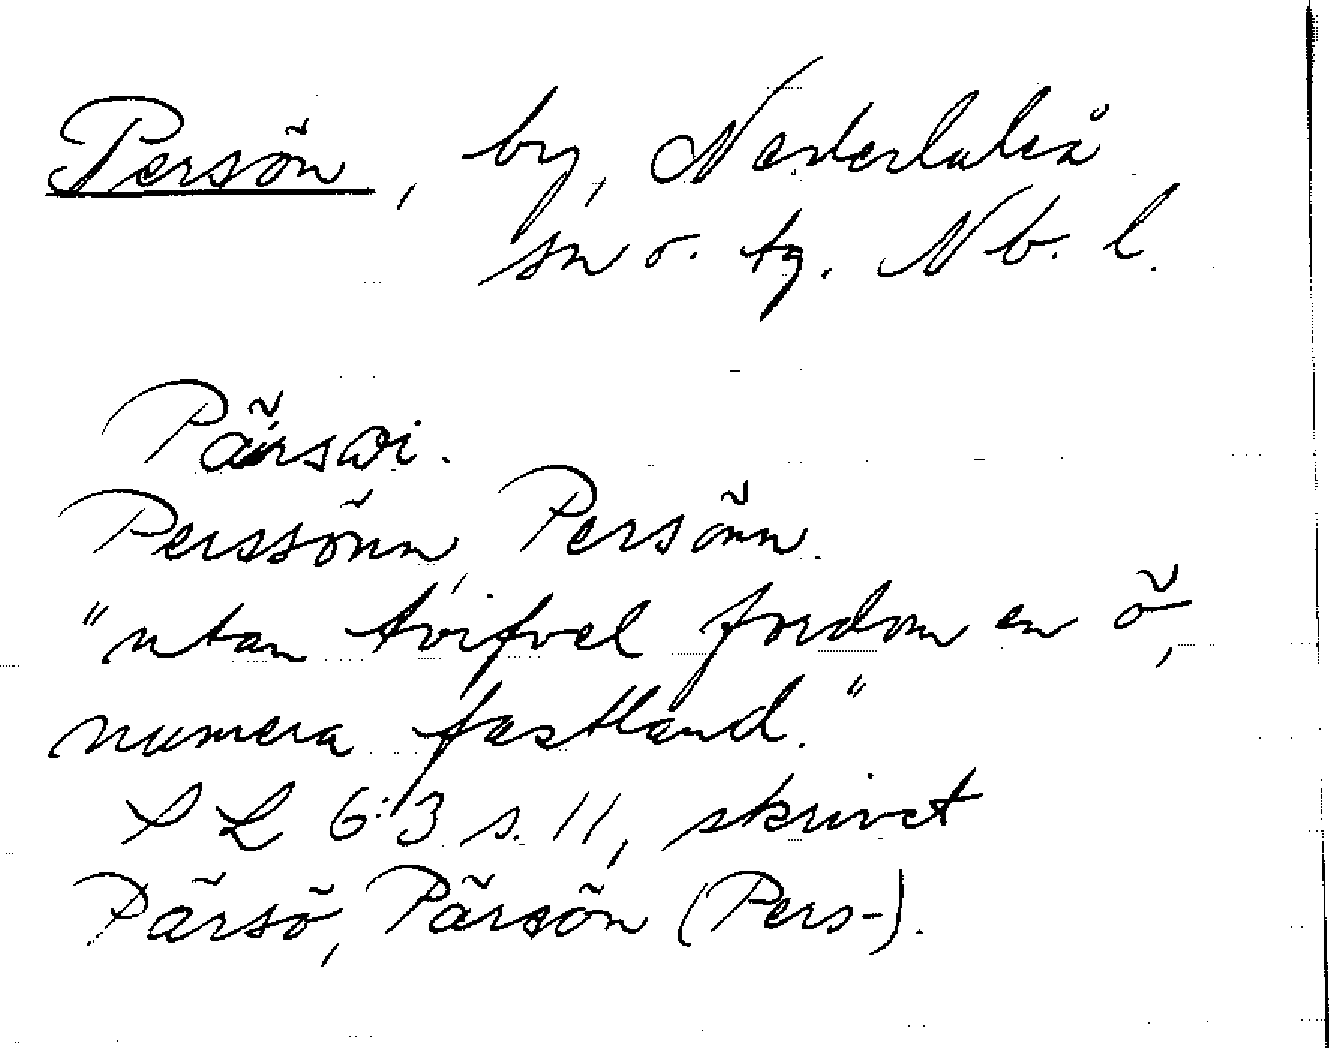 Persön, by, Nederluleå
sn o. tg. Nb. l.
Pärsœi.
Perssönn, Persönn.
"utan tvifvel fordom en ö,
numera fastland."
SL 6:3 s. 11, skrivet
Pärsö, Pärsön (Pers-).